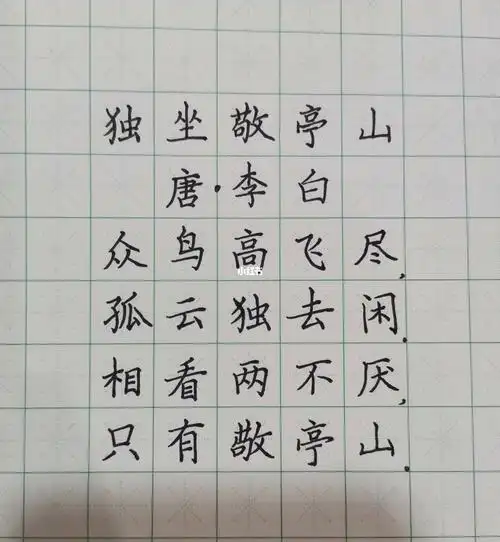 独坐敬亭山
唐·李白
众鸟高飞尽,
孤云独去闲.
相看两不厌,
只有敬亭山.
小红书